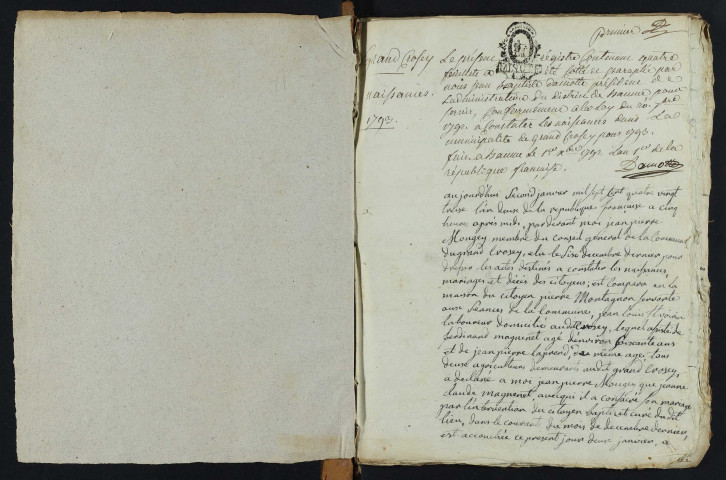 premier
Grand Crosey
naissances.
1793.
Le présent registre contenant quatre
feuillets a été cotté et paraphé par
nous jean Baptiste Damotte président de
L'administration du district de Baume pour
servir, conformement a la Loy du 20. 7bre
1792. a Constater les naissances dans La
municipalité de Grand Crosey pour 1793.
fait a Baume le 1er Xbre 1792. L'an 1er de la
république française.
Damotte
aujourdhui Second janvier mil sept cent quatre vingt
treise l'an deuse de la republique françoise a cinq
heure après midi, pardevant moi jean pierre
Mougey membre du Conseil général de la Commune
du grand Crosey, elu le dise decembre dernier pour
dresser les actes destinés a constater les naissances,
mariages et décès des citoyens; est Comparu en la
maison du citoyen pierre Montagnon
aux Séances de la Commune, jean Louis
laboureur domicilié audit Crosey, lequel assisté de
ferdinand magnenet agé d'environ soixante ans
et de jean pierre du même age; tous
deuse agriculteurs demeurants audit grand Crosey,
a déclaré a moi jean pierre Mougey que jeanne
claude magnenet, avec qui il a Contracté son mariage
par l'intervention du citoyen curé dudit
lieu, dans le courant du mois de decembre dernier,
est accouchée ce present jour deux janvier, a